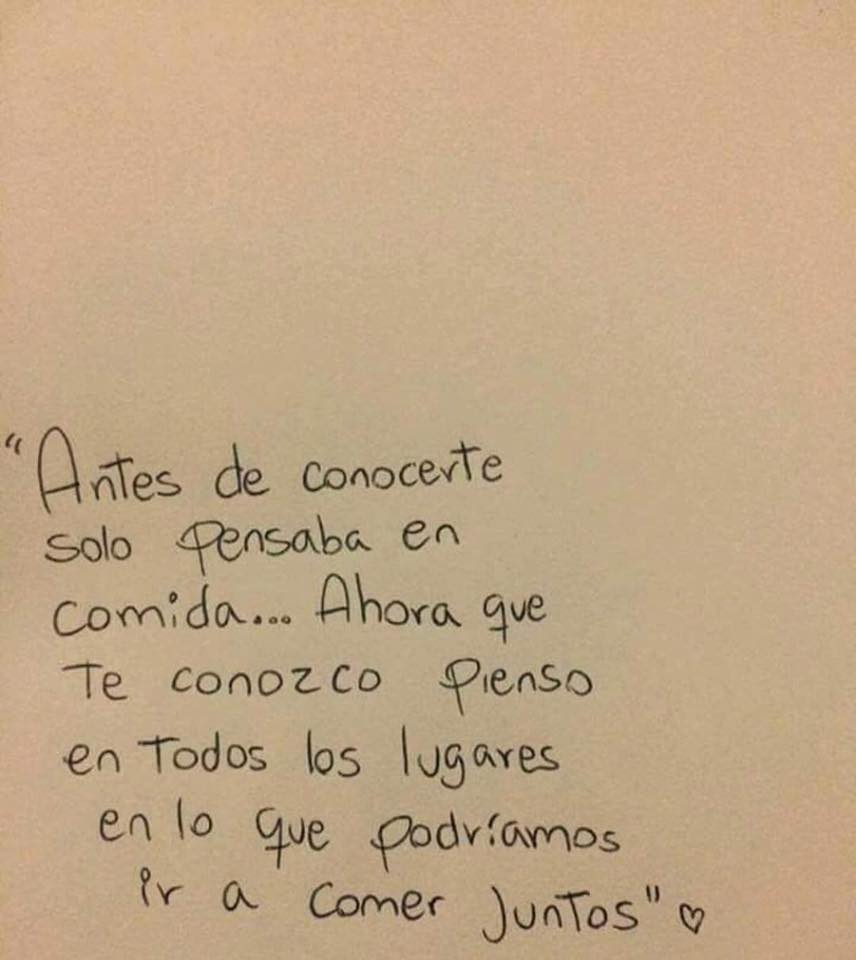 "Antes de conocerte
solo pensaba en
comida... Ahora que
Te conozco pienso
en Todos los lugares
en lo que podríamos
ir a comer juntos" ♡